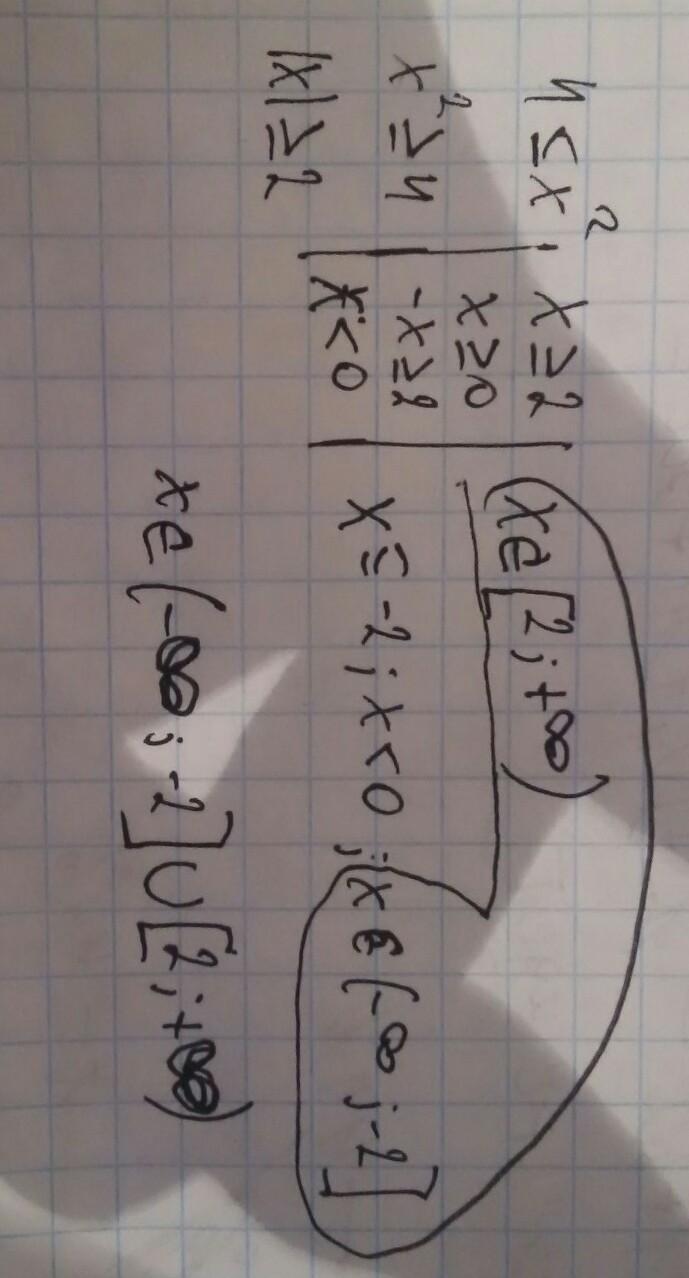 4 ≤ x²
x² ≥ 4
|x| ≥ 2
x ≥ 2
x ≥ 0
-x ≥ 2
x < 0
x ∈ [2; +∞)
x ≤ -2; x < 0; x ∈ (-∞; -2]
x ∈ (-∞; -2] ∪ [2; +∞)